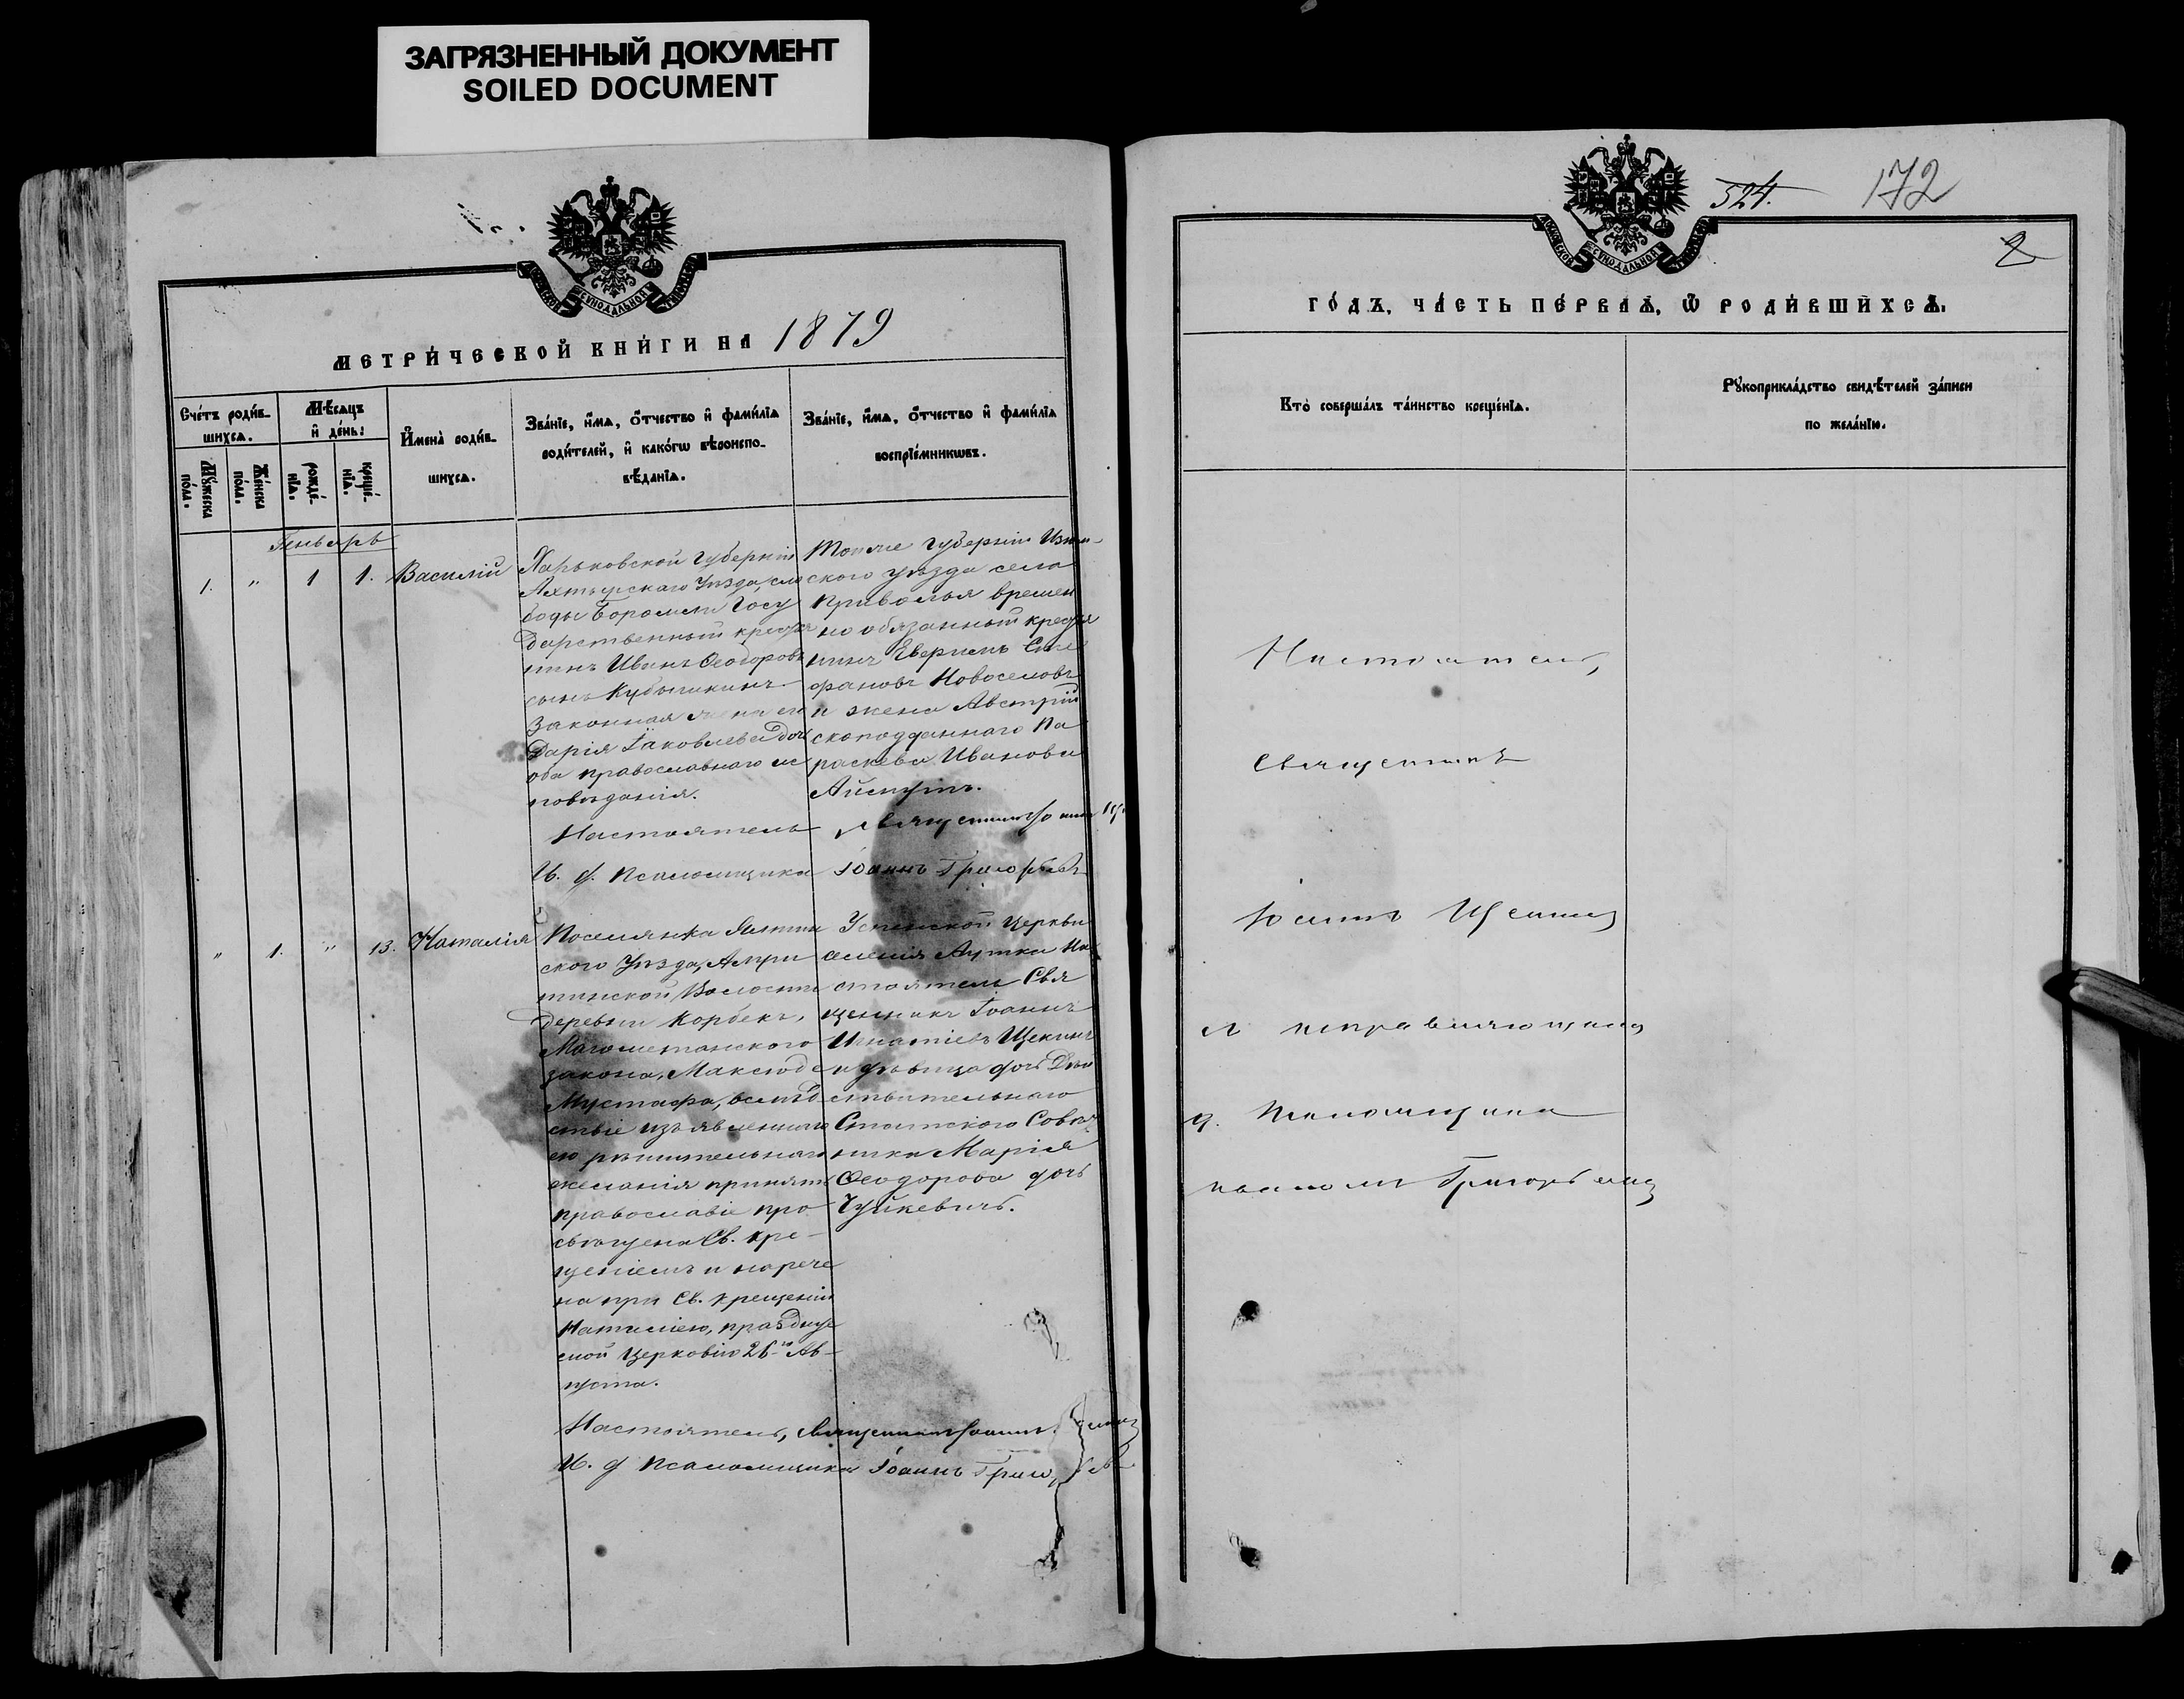 ЗАГРЯЗНЕННЫЙ ДОКУМЕНТ
SOILED DOCUMENT
МЕТРИ́ЧЕСКОЙ КНИ́ГИ НА 1879
Сче́тъ роди́в-
шихсѧ.
Мѣ́сѧцъ
и҆ де́нь:
Мꙋ́жеска
по́ла.
Же́нска
по́ла.
рожде́-
нїѧ.
креще́-
нїѧ.
И҆мена̀ роди́в-
шихсѧ.
Зва́нїе, и҆́мѧ, ѻ҆́тчество и҆ фами́лїѧ
роди́телей, и҆ како́гѡ вѣроиспо-
вѣ́данїѧ.
Зва́нїе, и҆́мѧ, ѻ҆́тчество и҆ фами́лїѧ
воспрїе́мникѡвъ.
Генварь
1. " 1 1. Василій
Харьковской губерніи
Ахтырскаго Уѣзда, сло
боды Боромли Госу
дарственный крестья
нинъ Иванъ Ѳеодоровъ
сынъ
Законная жена его
Дарія Іаковлева дочь
оба православнаго ис
повѣданія.
Тойже губерніи Изюм-
ского уѣзда села
Приволья времен
но обязанный крестья
нинъ Сте
фановъ Новоселовъ
и жена Австрій
скоподданнаго Па
раскева Иванова
Настоятель, священникъ Іоаннъ
И. д. псаломщика Іоаннъ Григорьевъ
" 1. " 13. Наталія
Поселянка Ялтин
ского Уѣзда,
Волости
деревни Корбекъ,
Магометанского
закона,
Мустафа, вслѣд
ствіе изъявленнаго
ею рѣшительнаго
желанія принять
православіе про
свѣщена Св. кре-
щеніемъ и нарече
на при Св. крещеніи
Наталіею, праздну
емой Церковію 26го Ав-
густа.
Успенской церкви
селенія Аутки На
стоятель Свя
щенникъ Іоаннъ
Игнатіевъ Щекинъ
и дѣвица дочь Дѣй
ствительнаго
Статского Совѣт
ника Марія
Ѳеодорова дочь
Чуйкевичъ.
Настоятель, священникъ Іоаннъ
И. д псаломщика Іоаннъ
524. 172
2
ГО́ДЪ, ЧА́СТЬ ПЕ́РВАѦ, Ѡ҆ РОДИ́ВШИХСѦ.
Кто̀ соверша́лъ та́инство креще́нїѧ.
Рꙋкоприкла́дство свидѣ́телей за́писи
по жела́нїю.
Настоятель,
священникъ
Іоаннъ Щекинъ
с исправляющимъ
д. псаломщика
Григорьевымъ